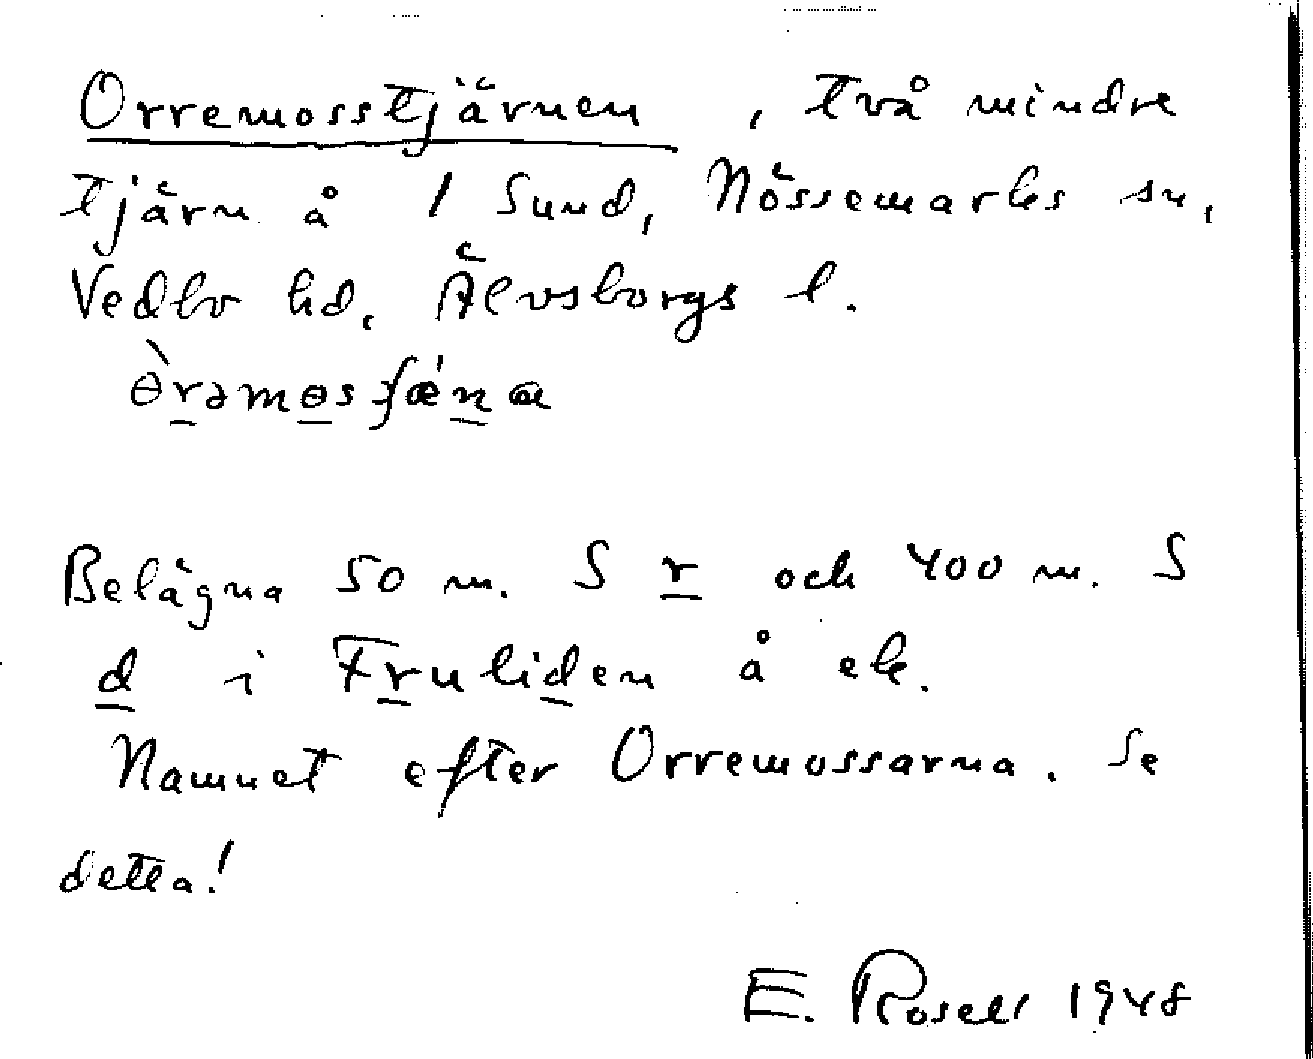 Orremosstjärnen, två mindre
tjärn å 1 Sund, Nössemarks sn,
Vedbo hd, Älvsborgs l.
Belägna 50 m. S r och 400 m. S
d i Fruliden å ek.
Namnet efter Orremossarna. Se
detta!
E. Rosell 1948